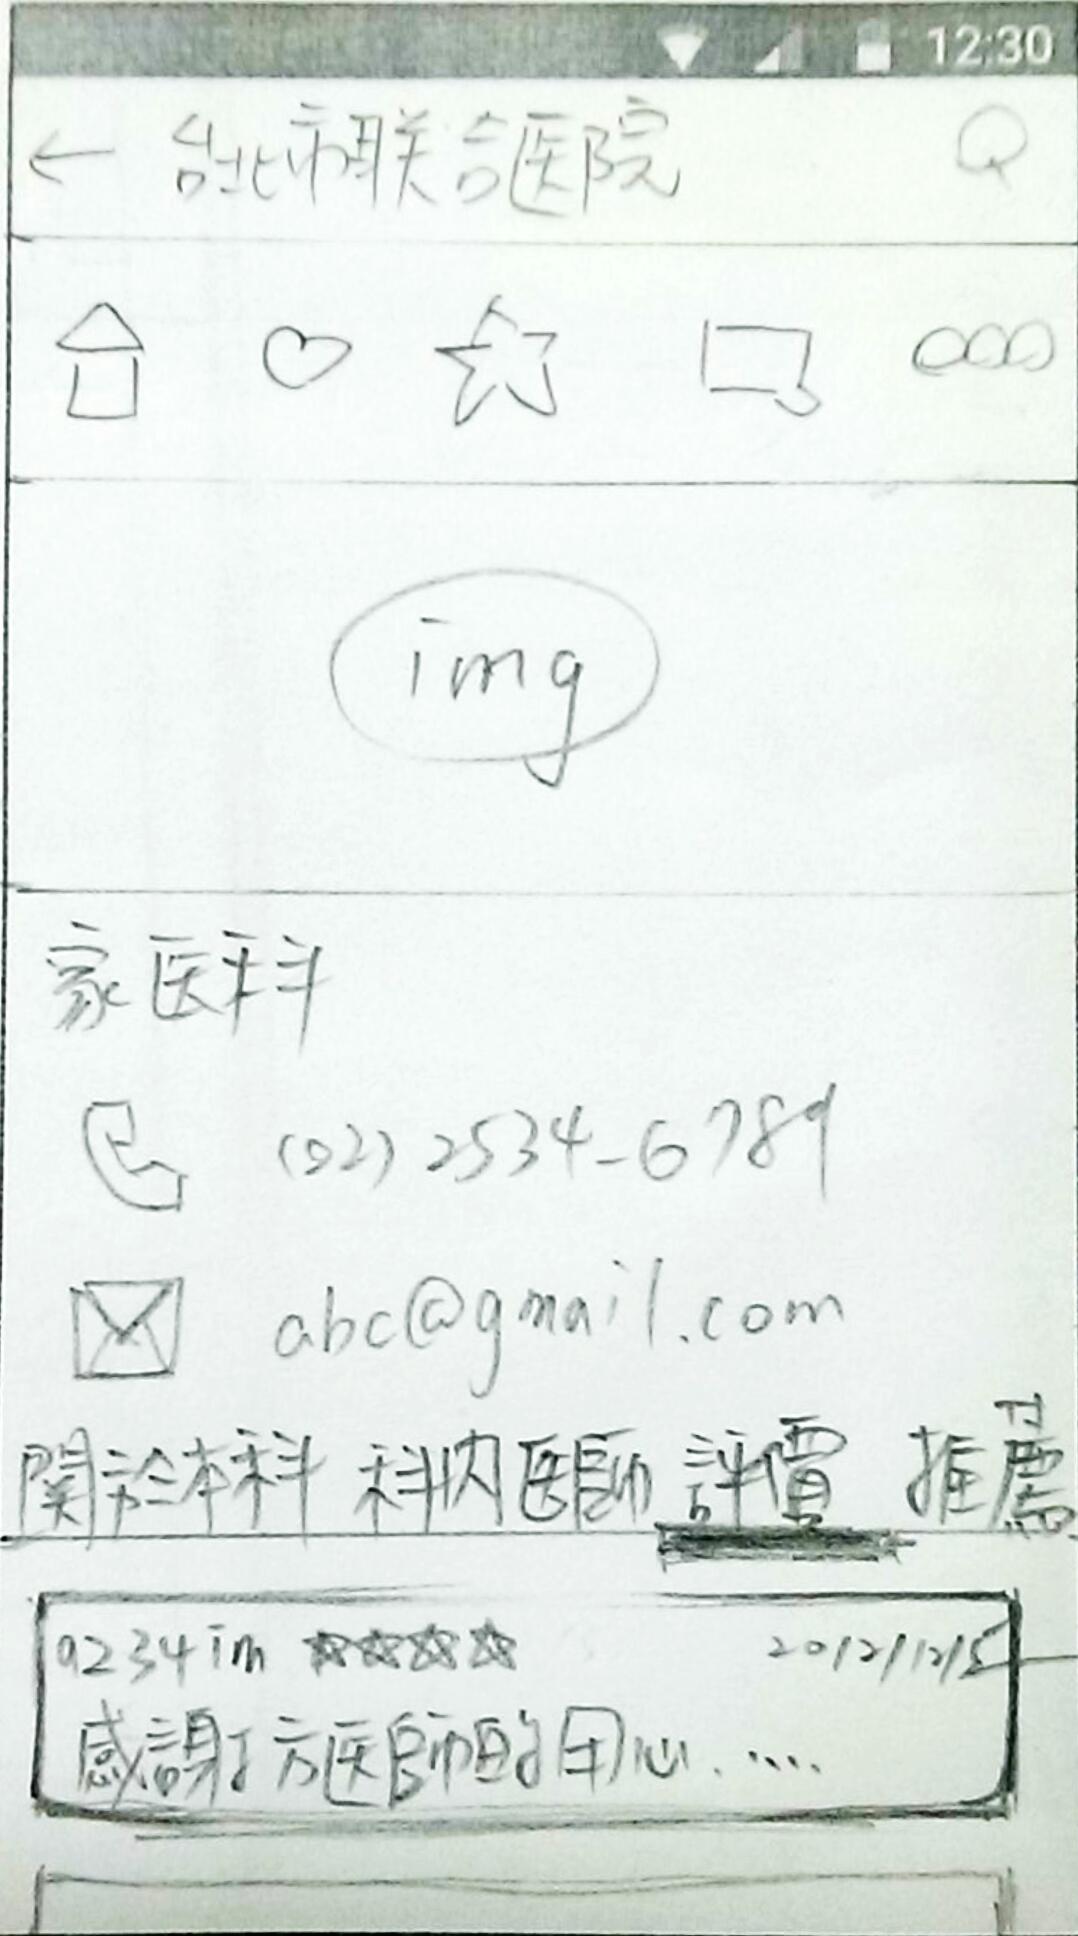 12:30
台北市联合医院
img
家医科
(02) 2534-6789
abc@gmail.com
關於本科 科内医師 評價 推薦
a234im ★★★★ 2012/12/5
感謝方医師的用心.....